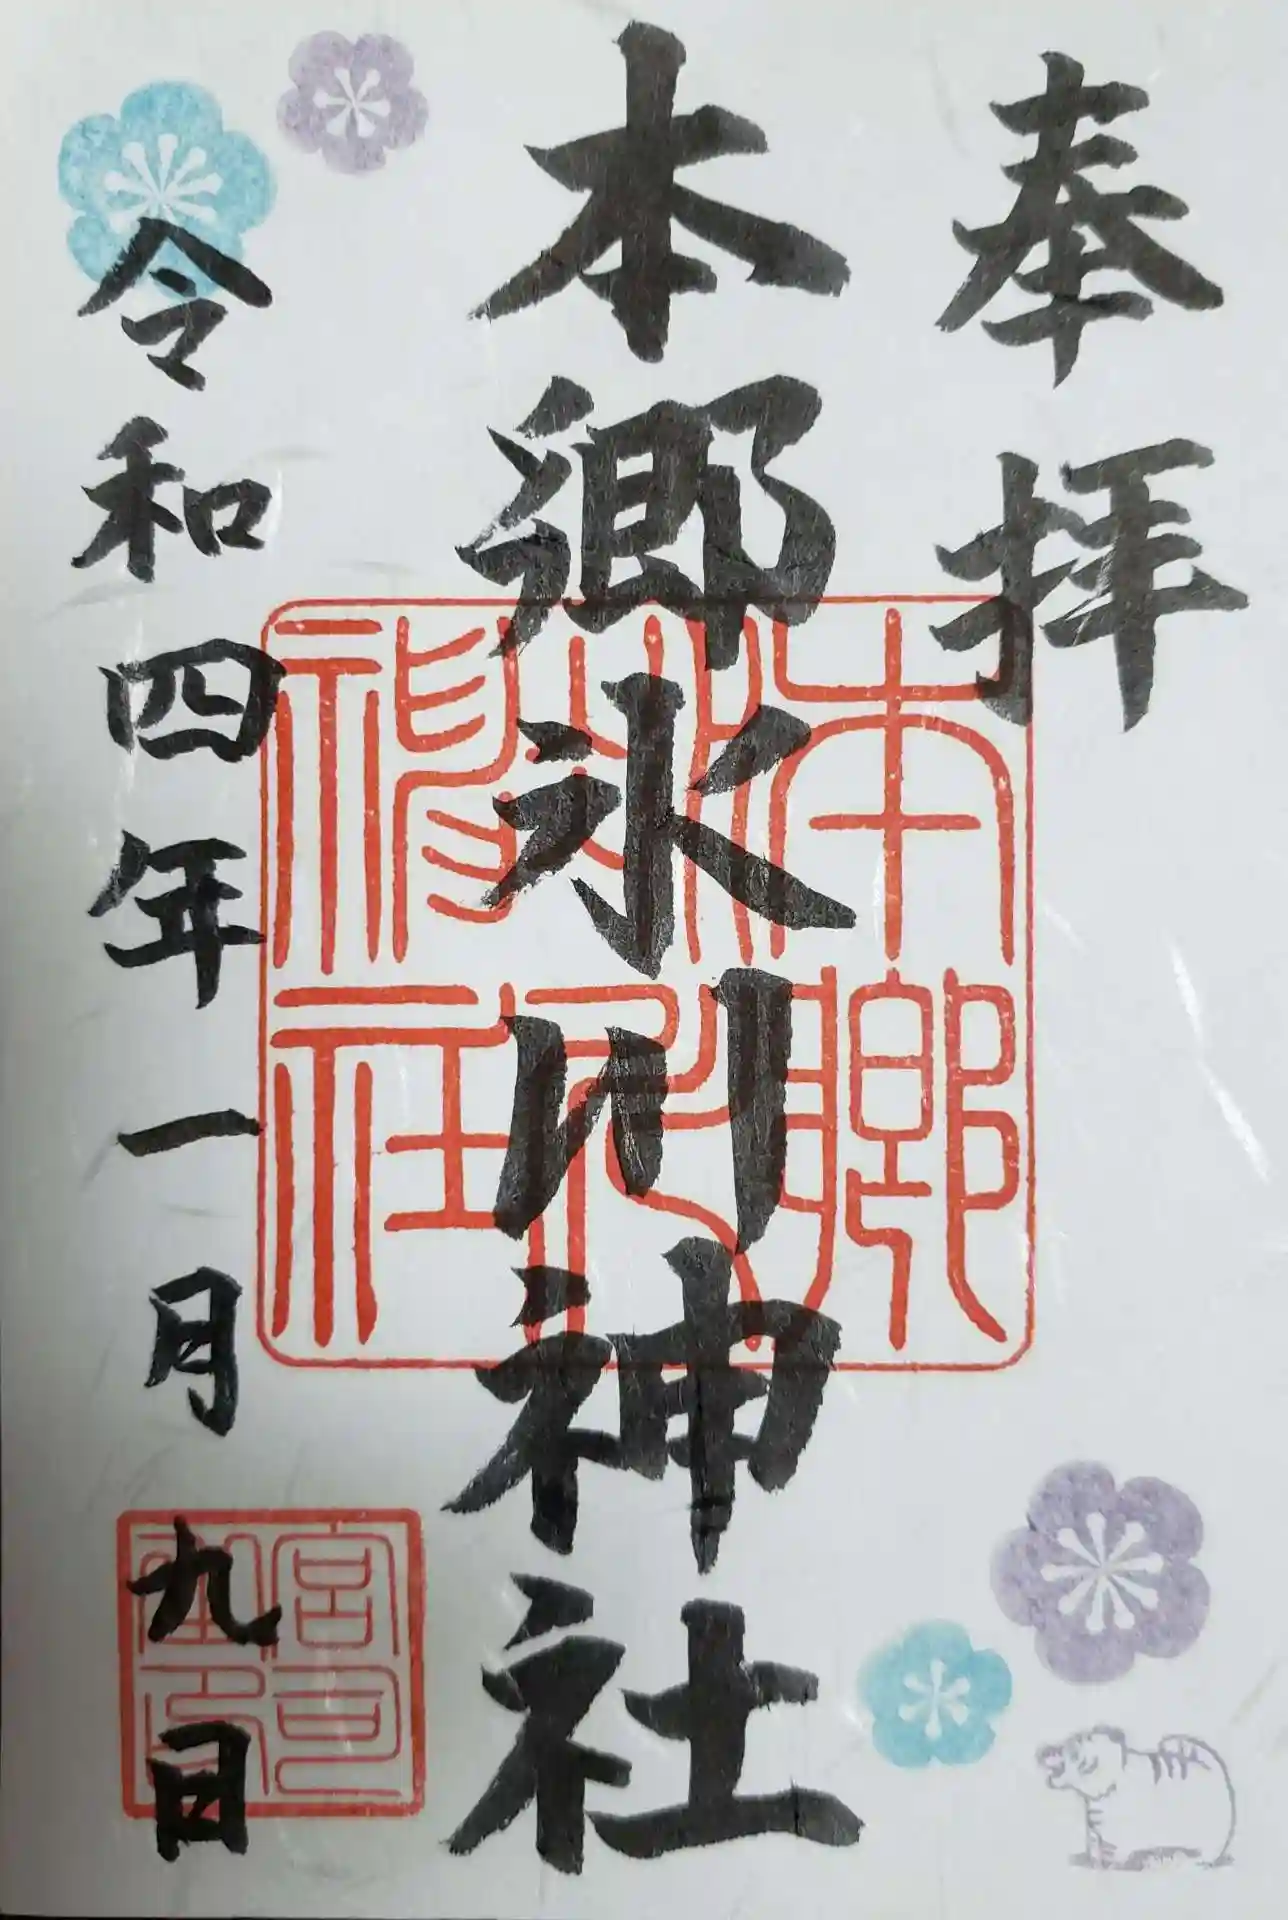 奉拝
本郷氷川神社
令和四年一月九日
本郷氷川神社